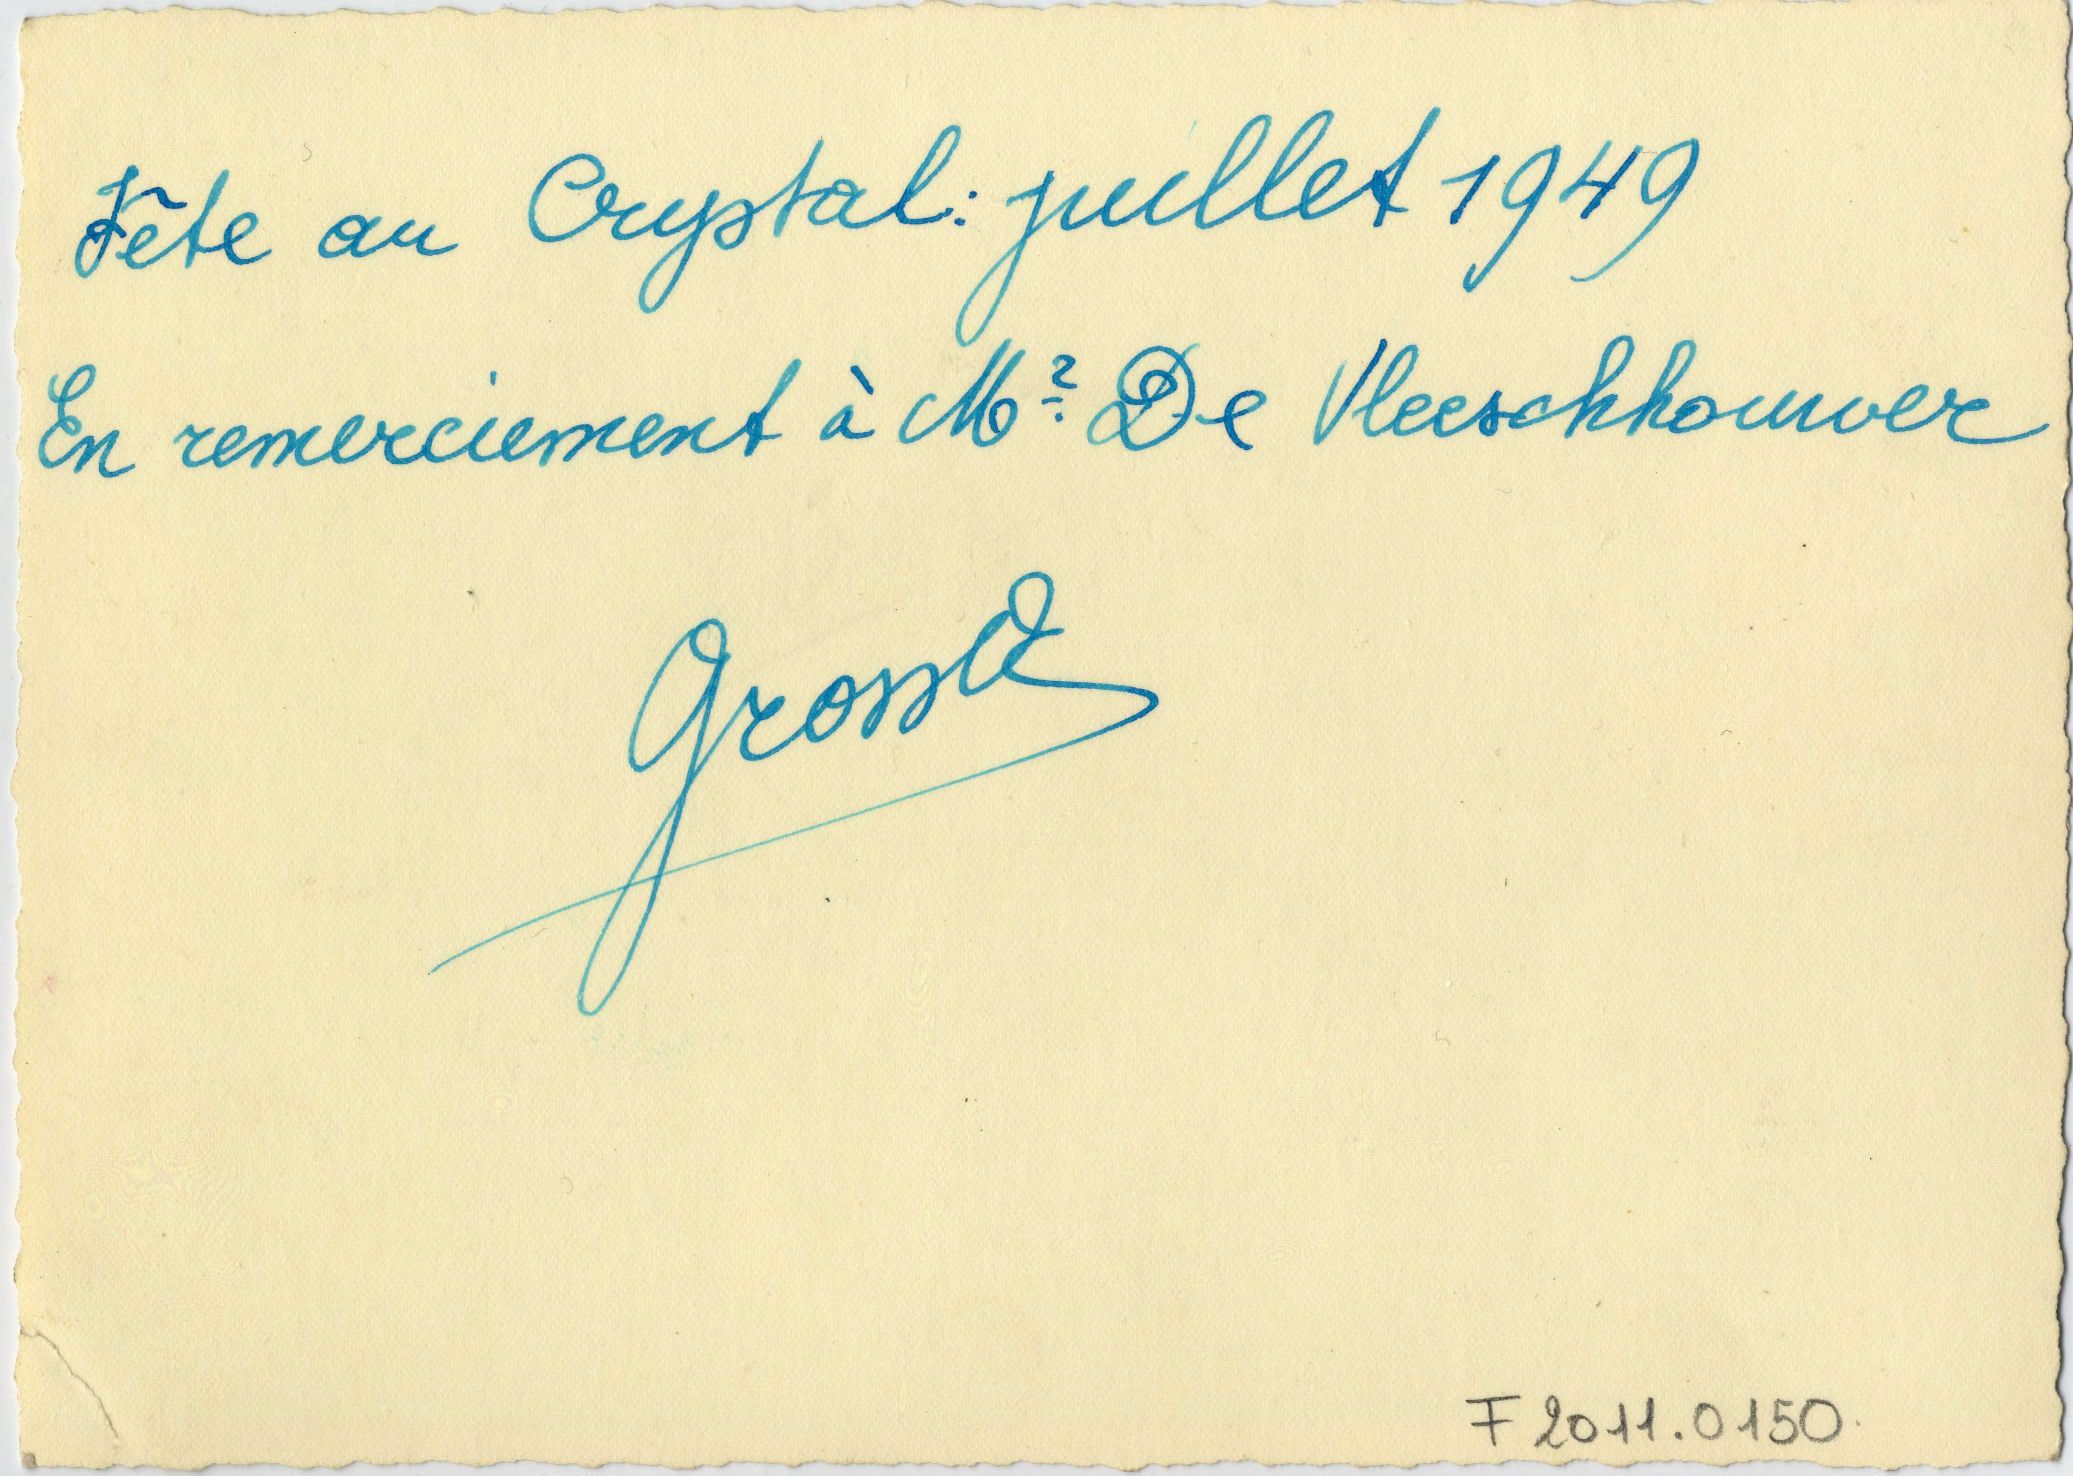 Fête au Crystal: juillet 1949
En remerciement à Mr De Vleeschhouwer
F 2011.0150